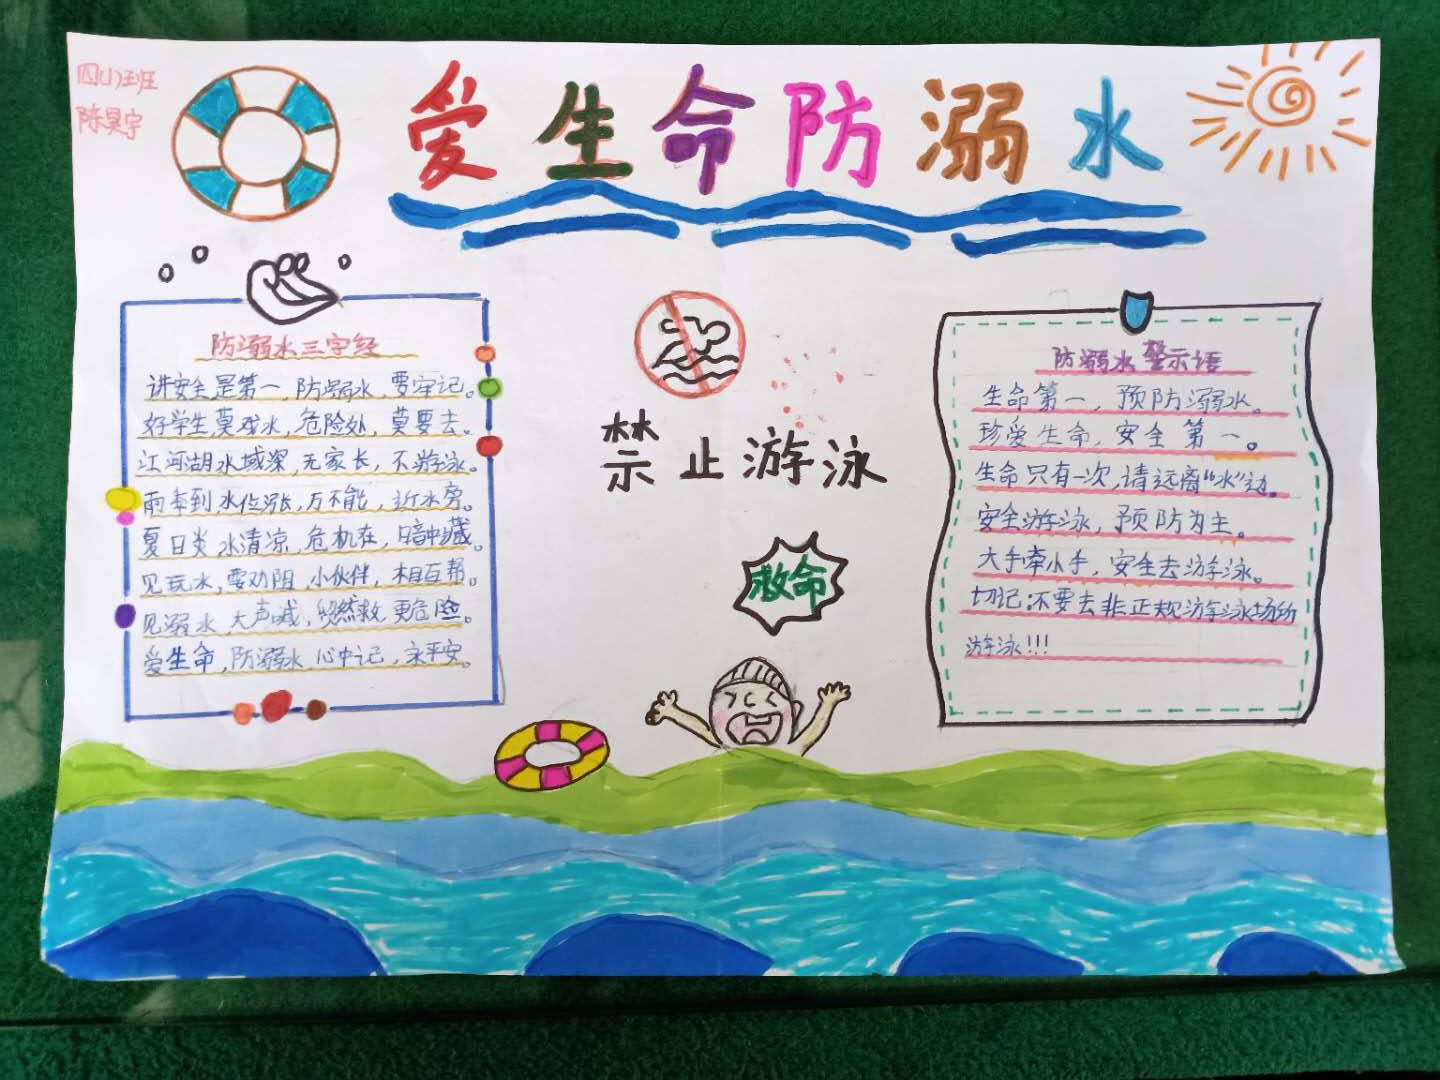 四(1)班
陈昊宇
爱生命防溺水
防溺水三字经
讲安全,是第一,防溺水,要牢记。
好学生,莫戏水,危险处,莫要去。
江河湖,水域深,无家长,不游泳。
雨季到,水位涨,万不能,近水旁。
夏日炎,水清凉,危机在,暗中藏。
见玩水,要劝阻,小伙伴,相互帮。
见溺水,大声喊,贸然救,更危险。
爱生命,防溺水,心中记,永平安。
禁止游泳
救命
防溺水警示语
生命第一,预防溺水。
珍爱生命,安全第一。
生命只有一次,请远离“水”边。
安全游泳,预防为主。
大手牵小手,安全去游泳。
切记:不要去非正规游泳场所
游泳!!!